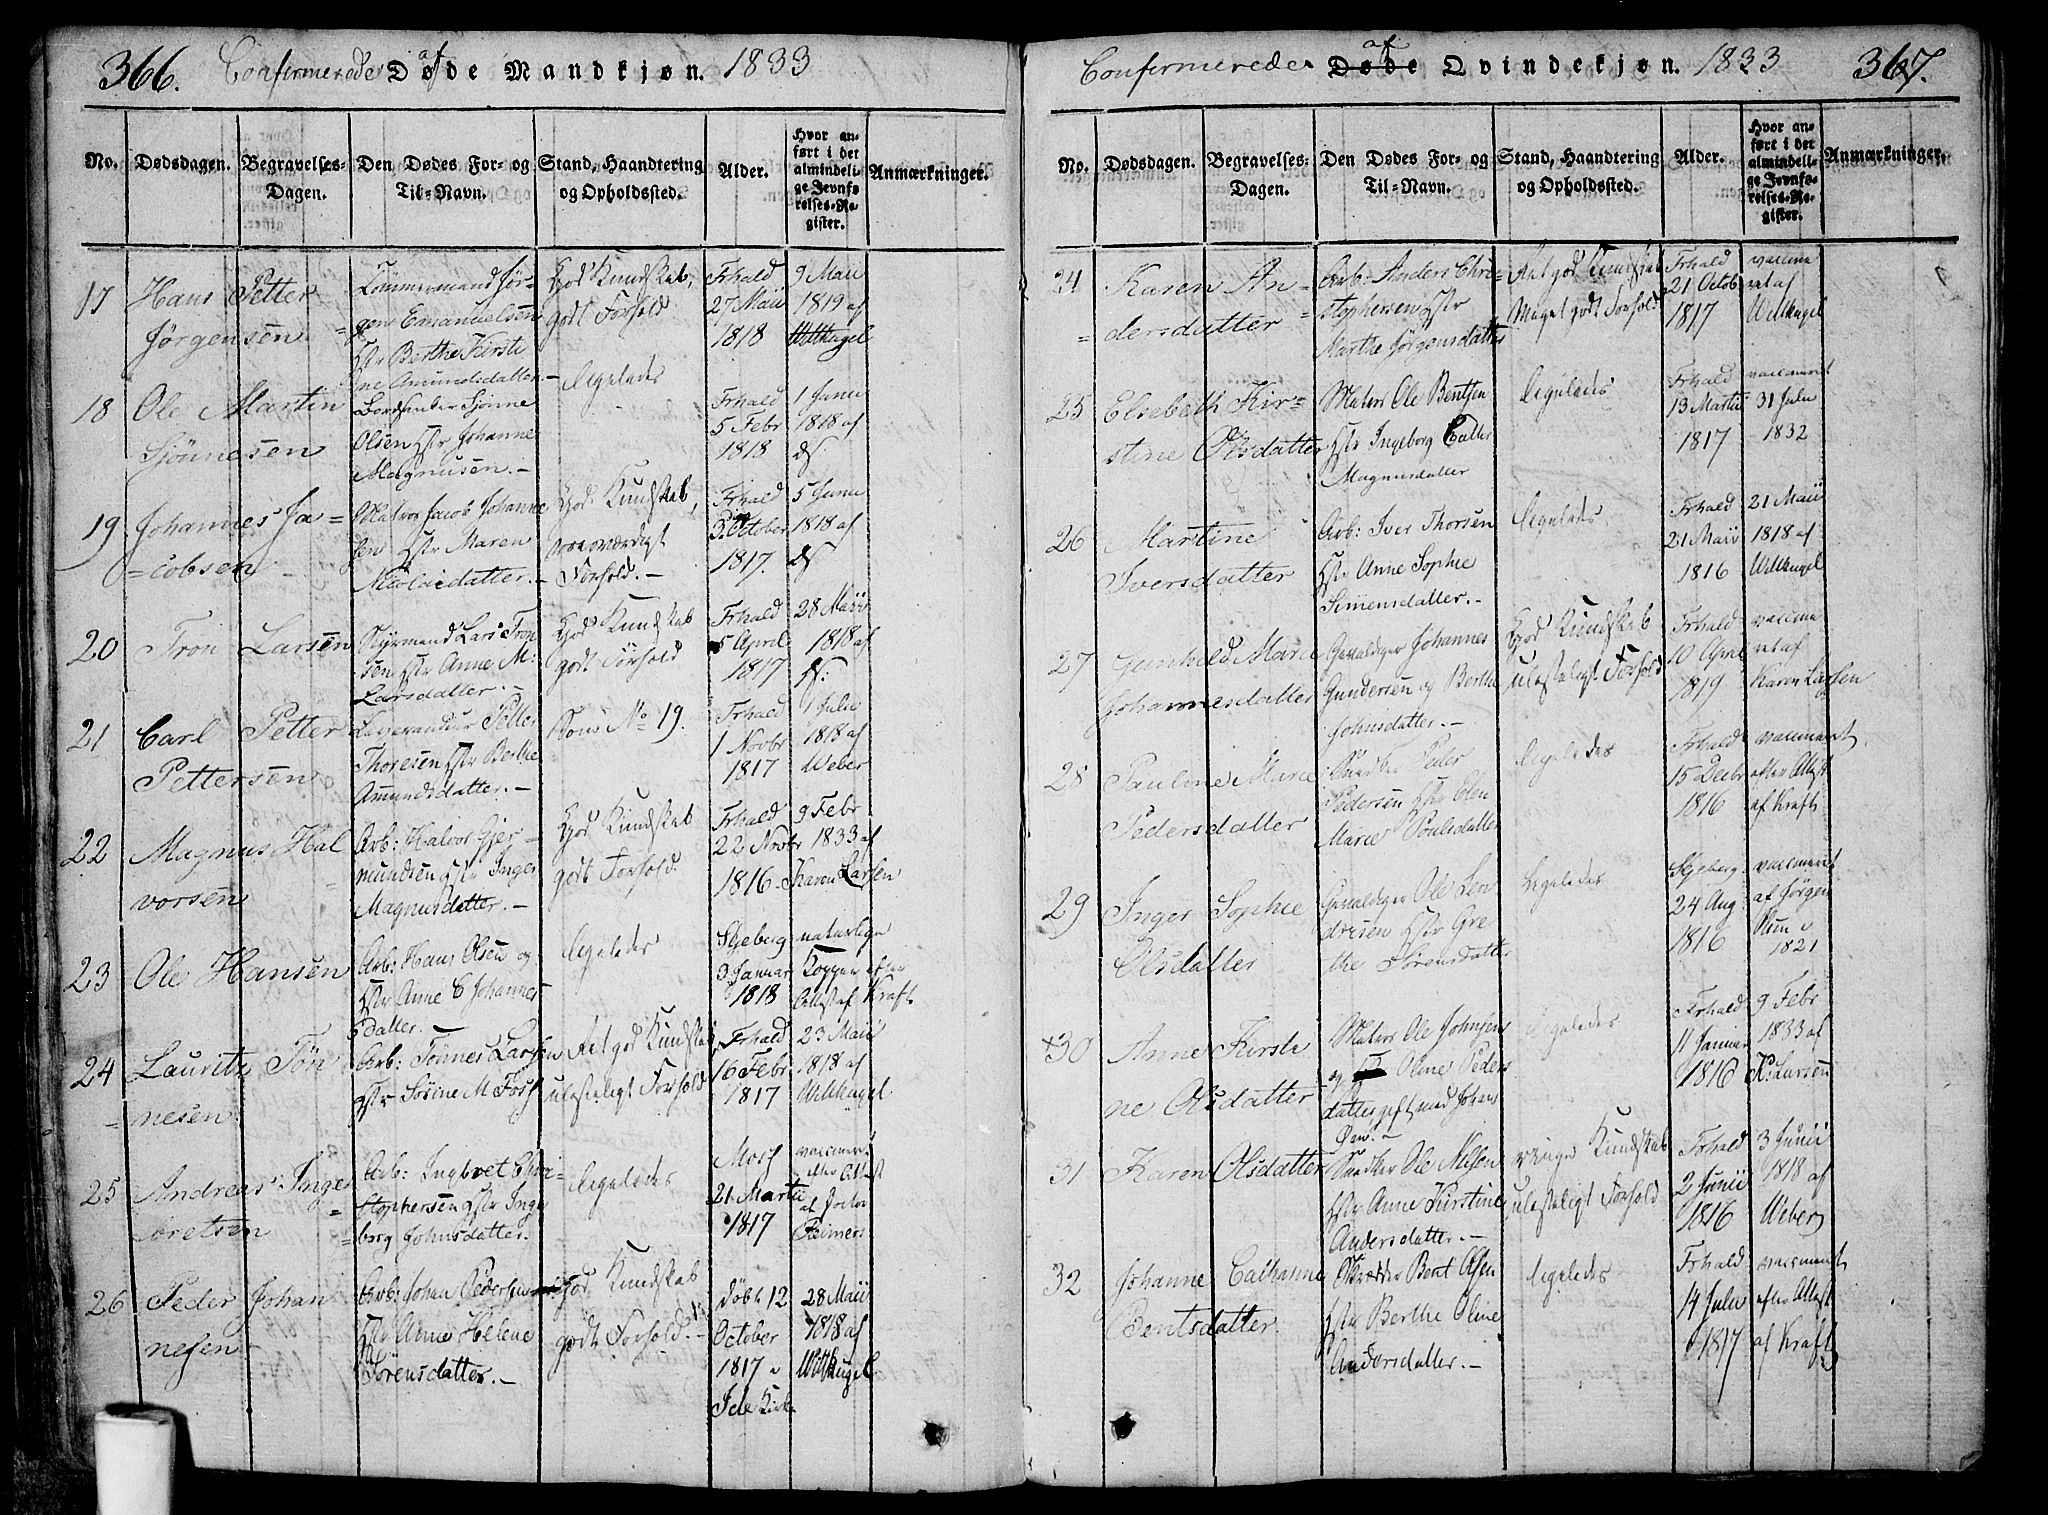 366. Confirmerede af Døde Mandkjøn. 1833
No. Dødsdagen. Begravelses-Dagen. Den Dødes For- og Til-Navn. Stand, Haandtering og Opholdssted. Alder. Hvor anført i det almindelige Jevnførelses-Register. Anmærkninger.
17 Hans Petter Jørgensen
Tømmermand Jørgen Emanuelsen Hstr Berthe Kirstine Amundsdatter.
God Kundskab, godt Forhold
Frhald 27 Maii 1818
9 Maii 1819 af Wilkugel
18 Ole Martin Sjönnesen
Sjönne Olsen Hstr Johanne Magnusen.
ligeledes
Frhald 5 Febr 1818
1 Juni 1818 af ds.
19 Johannes Jacobsen
Matros Jacob Johannesen Hstr Maren Nicolaidatter.
God Kundskab, roesværdigt Forhold.
Frhald October 1817.
5 Juni 1818 af ds
20 Tron Larsen
Styrmand Lars Tronsen Hstr Anne M: Larsdatter.
God Kundskab godt Forhold
Frhald 5 April 1817
28 Maii 1818 af ds:
21 Carl Petter Pettersen
Petter Thoresen Hstr Berthe Amundsdatter.
Som No 19.
Frhald 1 Novbr 1817
1 Julii 1818 af Weber
22 Magnus Halvorsen
Arb: Halvor Gjermundsen Hstr Inger Magnusdatter.
God Kundskab godt Forhold.
Frhald 22 Novbr 1816
9 Febr 1833 af Karen Larsen
23 Ole Hansen
Arb: Hans Olsen og Hstr Anne C Johannesdatter.
ligeledes
Skjeberg 3 Januar 1818
naturlige Kopper efter Attest af Kraft
24 Lauritz Tönnesen
Arb: Tönnes Larsen Hstr Sörine M. Fosf
Ret god Kundskab, ulasteligt Forhold
Frhald 16 Febr 1817
23 Maii 1818 af Wilkugel
25 Andreas Ingebretsen
Arb: Ingbret Christophersen Hstr Ingeborg Johnsdatter.
ligeledes
Moss 21 Martii 1817
vaccineret efter Attest af Doctor Reimers
26 Peder Johannesen
Arb: Johan Pedersen Hstr Anne Helene Sörensdatter.
God Kundskab godt Forhold.
döbt 12 October 1817 i Ide Kirke
28 Maii 1818 af Wilkugel
Confirmerede af Døde Qvindekjøn. 1833 367.
No. Dødsdagen. Begravelses-Dagen. Den Dødes For- og Til-Navn. Stand, Haandtering og Opholdssted. Alder. Hvor anført i det almindelige Jevnførelses-Register. Anmærkninger.
24 Karen Andersdatter
Arb: Anders Christophersen Hstr Marthe Jørgensdatter
Ret god Kundskab Meget godt Forhold
Frhald 21 Octob 1817
vaccineret af Wilkugel
25 Elsebeth Kirstine Olsdatter
Matros Ole Bentsen Hstr Ingeborg Magnusdatter
ligeledes
Frhald 13 Martii 1817
vaccineret 31 Julii 1832
26 Martine Iversdatter
Arb: Iver Thorsen Hstr Anne Sophie Simensdatter.
ligeledes
Frhald 21 Maii 1816
21 Maii 1818 af Wilkugel
27 Gunhild Marie Johannesdatter
Gevaldiger Johannes Gundersen og Berthe Johnsdatter.
God Kundskab ulasteligt Forhold
Frhald 10 April 1819
vaccineret af Karen Larsen
28 Pauline Marie Pedersdatter
Snedker Peder Pedersen Hstr Elen Marie Poulsdatter
ligeledes
Frhald 15 Decbr 1816
vaccineret efter Attest af Kraft
29 Inger Sophie Olsdatter
Gevaldiger Ole Hstr Grethe Sörensdatter
ligeledes
Skjeberg 24 Aug: 1816
vaccineret af Jørgen 1821
+30 Anne Kirstine Olsdatter
Matros Ole Johnsen og Oline Pedersdatter gift med Johan
ligeledes
Frhald 11 Januar 1816
9 Febr 1833 af K: Larsen
31 Karen Olsdatter
Snedker Ole Nilsen Hstr Anne Kirstine Andersdatter.
ringe Kundskab ulasteligt Forhold
Frhald 2 Junii 1816
3 Junii 1818 af Weber
32 Johanne Cathrine Bentsdatter.
Skrædder Bent Olsen Hstr Berthe Oline Andersdatter.
ligeledes
Frhald 14 Julii 1817
vaccineret efter Attest af Kraft